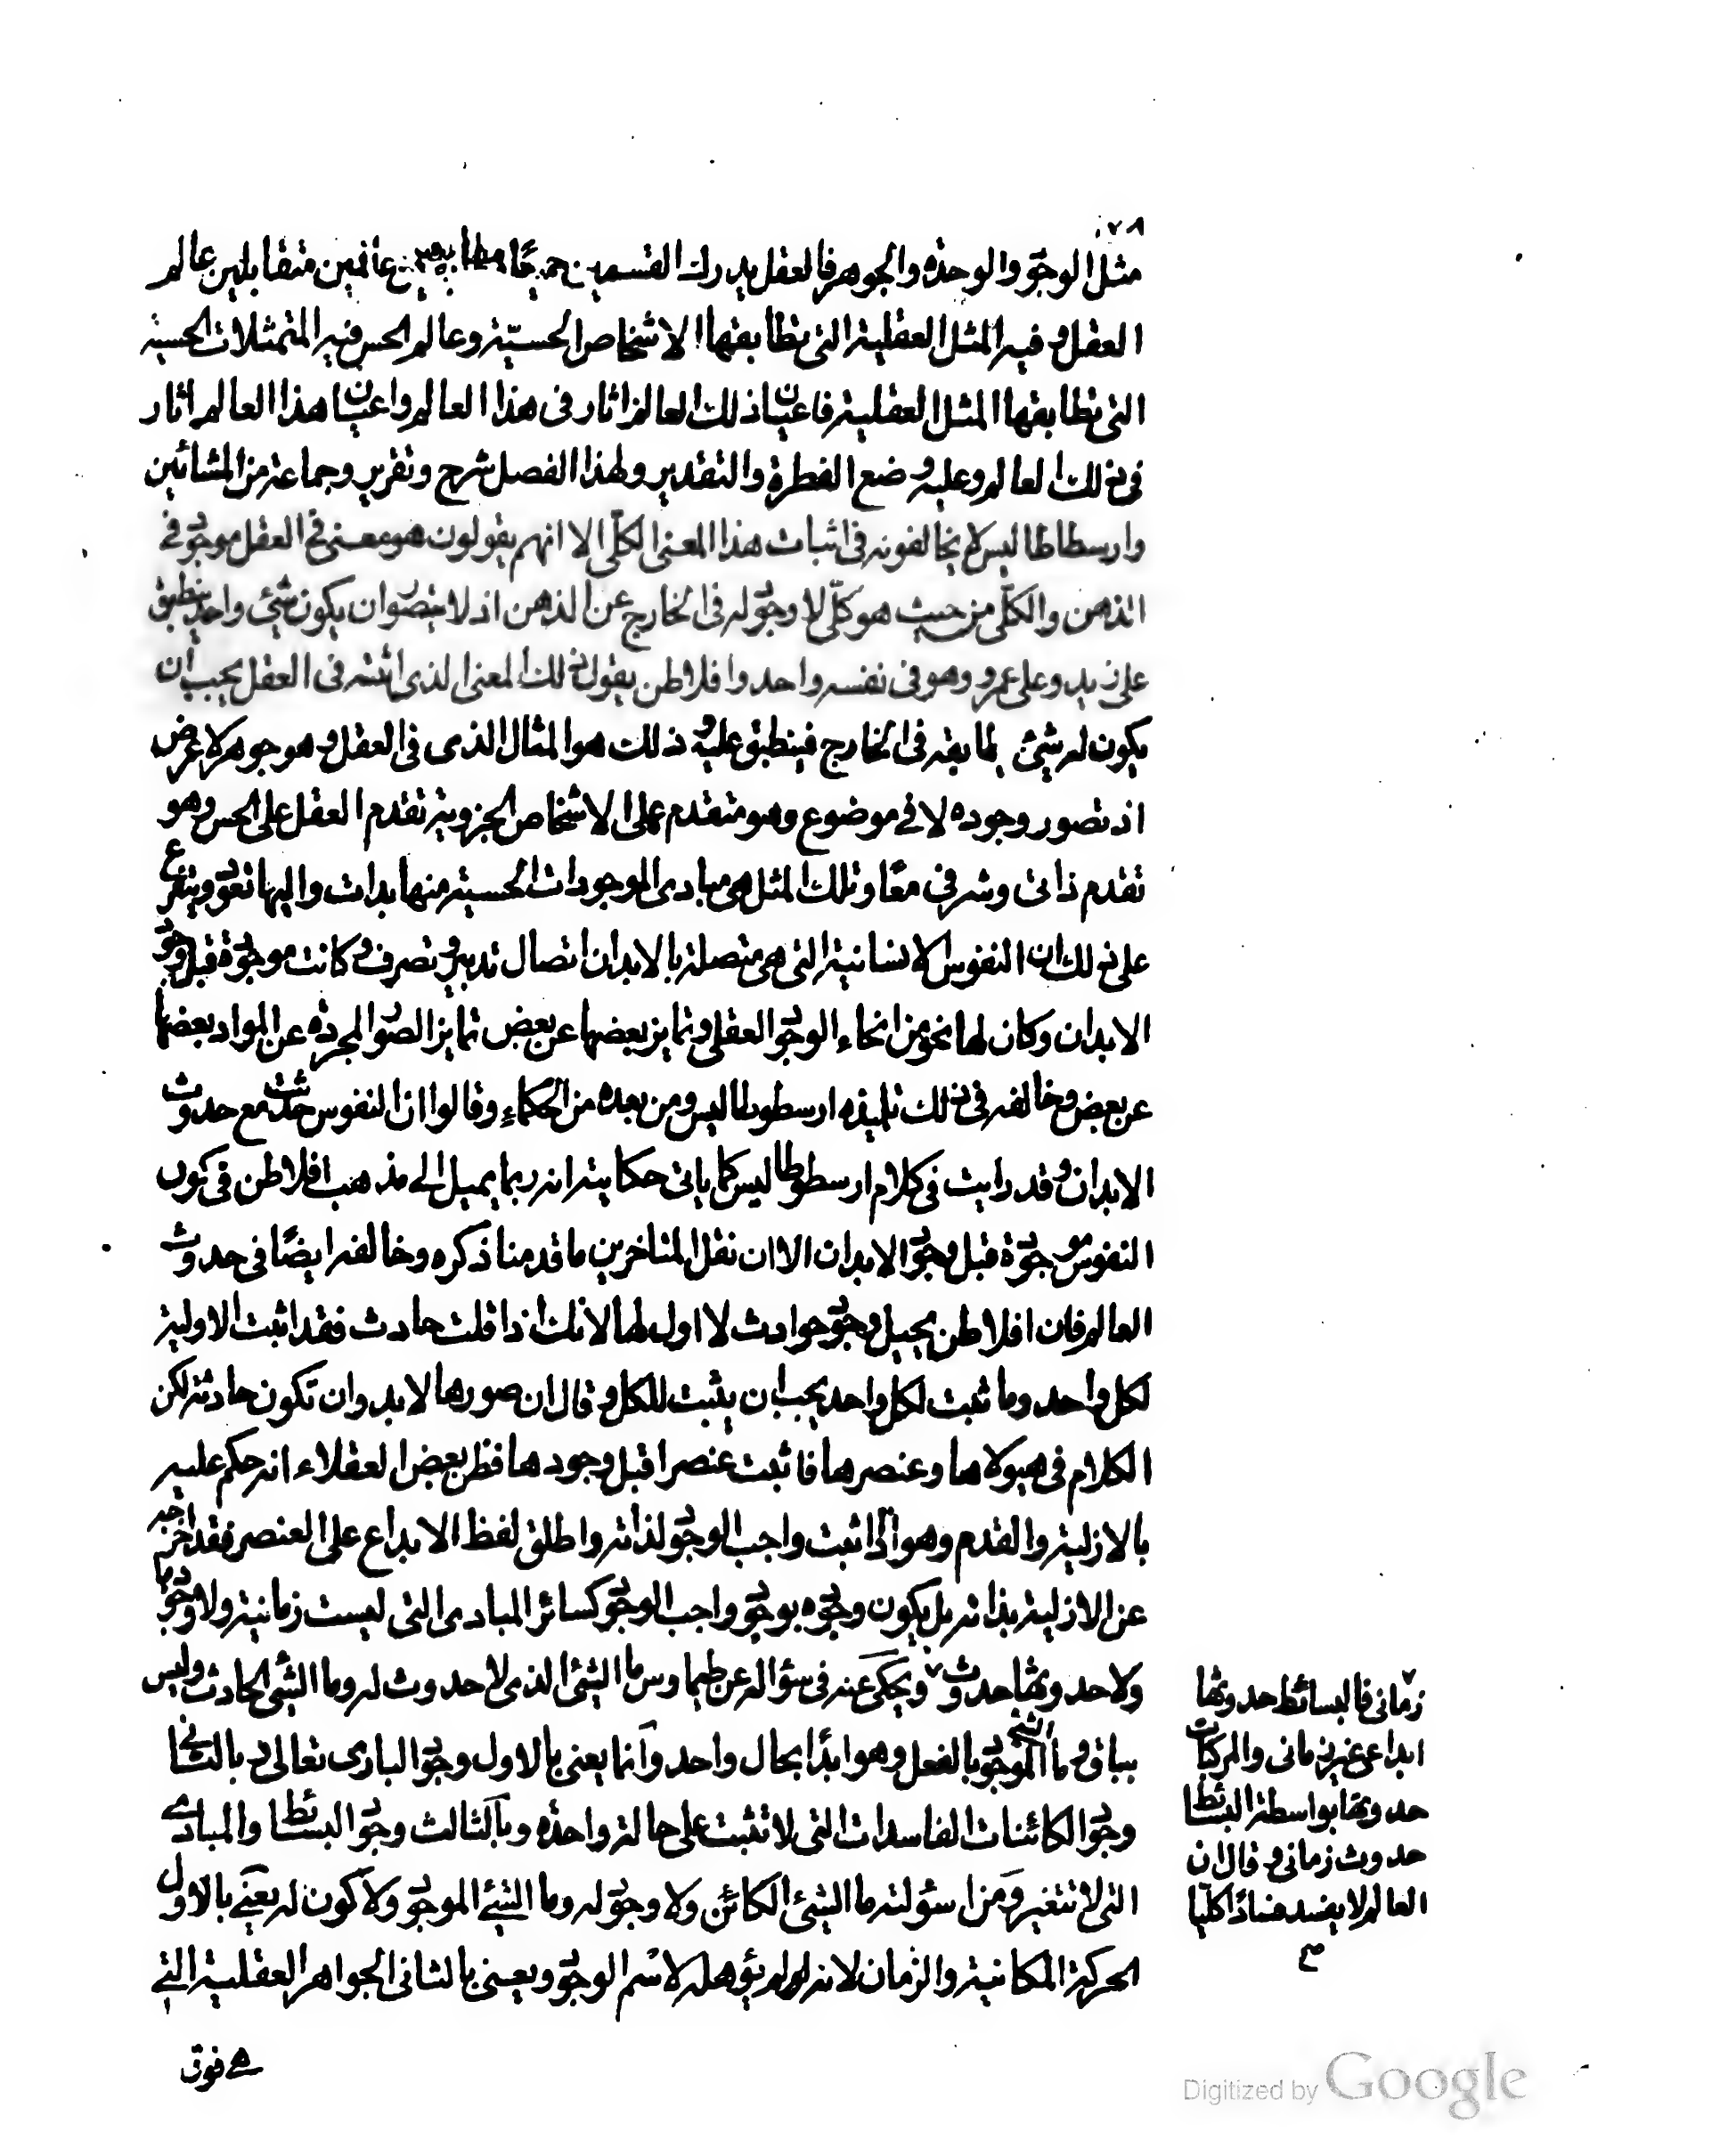 ١٧٨
مثل الوجود والوحدة والجوهر فالعقل يدرك القسمين جميعًا مطابقين عالمين متقابلين عالم
العقل وفيه المثل العقلية التى تطابقها الاشخاص الحسيّة وعالم الحس فيه المتمثلات الحسية
التى تطابقها المثل العقلية فاعيان ذلك العالم اثار فى هذا العالم واعيان هذا العالم اثار
فى ذلك العالم وعليه وضع الفطرة والتقدير ولهذا الفصل شرح وتقرير وجماعة من المشائين
وارسطاطاليس لا يخالفونه فى اثبات هذا المعنى الكلّى الا انهم يقولون هو معنى فى العقل موجود فى
الذهن والكلّى من حيث هو كلّى لا وجود له فى الخارج عن الذهن اذ لا يتصور ان يكون شئ واحد ينطبق
على زيد وعلى عمرو وهو فى نفسه واحد وافلاطن يقول ذلك المعنى الذى اثبته فى العقل يجب ان
يكون له شئ يطابقه فى الخارج فينطبق عليه وذلك هو المثال الذى فى العقل وهو جوهر لا عرض
اذ تصور وجوده لا فى موضوع وهو متقدم على الاشخاص الجزوية تقدم العقل على الحس وهو
تقدم ذاتى وشرفى معًا وتلك المثل هى مبادى الموجودات الحسية منها بدات واليها تعود ويتفرع
على ذلك ان النفوس الانسانية التى هى متصلة بالابدان اتصال تدبير وتصرف وكانت موجودة قبل وجود
الابدان وكان لها نحو من انحاء الوجود العقلى وتمايز بعضها عن بعض تمايز الصور المجردة عن المواد بعضها
عن بعض وخالفه فى ذلك تلميذه ارسطوطاليس ومن بعده من الحكماء وقالوا ان النفوس حدثت مع حدوث
الابدان وقد رايت فى كلام ارسطوطاليس كما ياتى حكايته انه ربما يميل الى مذهب افلاطن فى كون
النفوس موجودة قبل وجود الابدان الا ان نقل المتاخرين ما قدمنا ذكره وخالفه ايضًا فى حدوث
العالم فان افلاطن يحيل وجود حوادث لا اول لها لانك اذا قلت حادث فقد اثبت الاولية
لكل واحد وما ثبت لكل واحد يجب ان يثبت للكل وقال ان صورها لا بد وان تكون حادثة لكن
الكلام فى هيولاها وعنصرها فاثبت عنصرا قبل وجودها فظن بعض العقلاء انه حكم عليه
بالازلية والقدم وهو اذا اثبت واجب الوجود لذاته واطلق لفظ الابداع على العنصر فقد اخرجه
عن الازلية بذاته بل يكون وجوده بوجود واجب الوجود كسائر المبادى التى ليست زمانية ولا وجودها
ولا حدوثها حدوث ٧ ويحكى عنه فى سؤاله عن طيماوس ما الشئ الذى لا حدوث له وما الشئ الحادث وليس
بباق وما الشئ الموجود بالفعل وهو ابدًا بحال واحد وانما يعنى بالاول وجود البارى تعالى وبالثانى
وجود الكائنات الفاسدات التى لا تثبت على حالة واحدة وبالثالث وجود البسائط والمبادى
التى لا تتغير ومن اسؤلته ما الشئ الكائن ولا وجود له وما الشئ الموجود ولا كون له يعنى بالاول
الحركة المكانية والزمان لانه لم يؤهله لاسم الوجود ويعنى بالثانى الجواهر العقلية التى
هى فوق
٧ زمانى فالبسائط حدوثها
ابداعى غير زمانى والمركبات
حدوثها بواسطة البسائط
حدوث زمانى وقال ان
العالم لا يفسد فسادًا كليا
صح
Digitized by Google